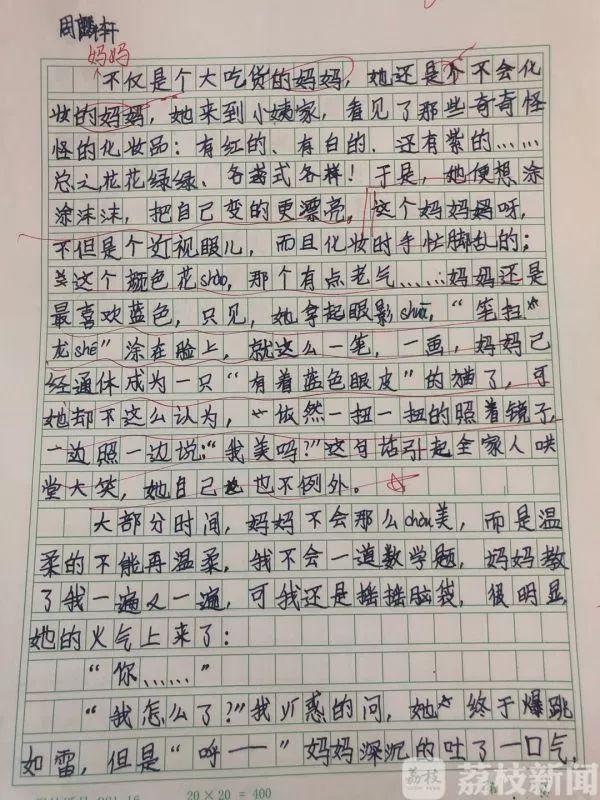 周麟轩
妈妈
不仅是个大吃货的妈妈，她还是个不会化
妆的妈妈，她来到小姨家，看见了那些奇奇怪
怪的化妆品：有红的、有白的、还有紫的……
总之花花绿绿、各式各样！于是，她便想涂
涂沫沫，把自己变的更漂亮，这个妈妈呀，
不但是个近视眼儿，而且化妆时手忙脚乱的；
这个颜色花shào，那个有点老气……妈妈还是
最喜欢蓝色，只见，她拿起眼影shuā，“笔扫
龙shé”涂在脸上，就这么一笔，一画，妈妈已
经通体成为一只“有着蓝色眼皮”的猫了，可
她却不这么认为，依然一扭一扭的照着镜子，
一边照一边说：“我美吗？”这句话引起全家人哄
堂大笑，她自己也不例外。
大部分时间，妈妈不会那么chòu美，而是温
柔的不能再温柔，我不会一道数学题，妈妈教
了我一遍又一遍，可我还是摇摇脑袋，很明显，
她的火气上来了：
“你……”
“我怎么了？”我疑惑的问，她终于爆跳
如雷，但是“呼——”妈妈深沉的吐了一口气，
20×20=400
荔枝
荔枝新闻